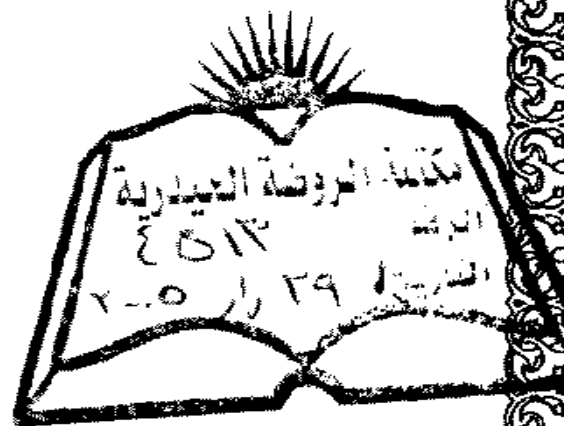 مكتبة الروضة الحيدرية
الرقم ٤٥١٣
التاريخ ٢٩ / را ٢٠٠٥